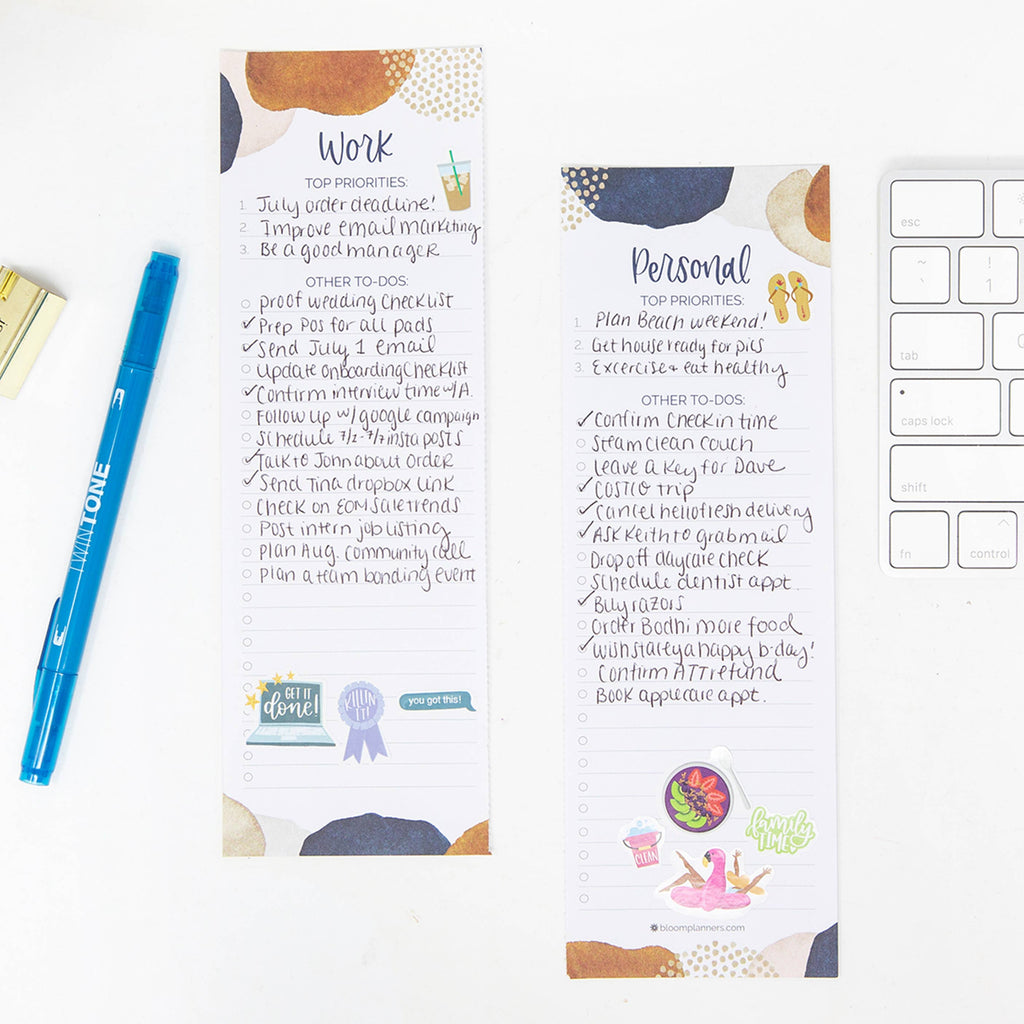 Work
TOP PRIORITIES:
1. July order deadline!
2. Improve email marketing
3. Be a good manager
OTHER TO-DOS:
proof wedding checklist
Prep Pos for all pads
Send July 1 email
Update onboarding checklist
Confirm interview time w/A.
Follow up w/ google campaign
Schedule 7/2-7/7 insta posts
Talk to John about order
Send Tina dropbox link
Check on EOM sale trends
Post intern job listing
Plan Aug. community call
Plan a team bonding event
GET IT
done!
KILLIN'
IT!
you got this!
Personal
TOP PRIORITIES:
1. Plan Beach weekend!
2. Get house ready for pics
3. Excercise + eat healthy
OTHER TO-DOS:
Confirm check in time
Steam clean couch
leave a key for Dave
COSTCO trip
Cancel hellofresh delivery
ASK Keith to grab mail
Drop off daycare check
Schedule dentist appt.
Buy razors
Order Bodhi more food
Wish starey a happy b-day!
Confirm ATT refund
Book applecare appt.
CLEAN
family
TIME!
bloomplanners.com
TWINTONE
esc
~
`
!
1
tab
Q
caps lock
shift
fn
control